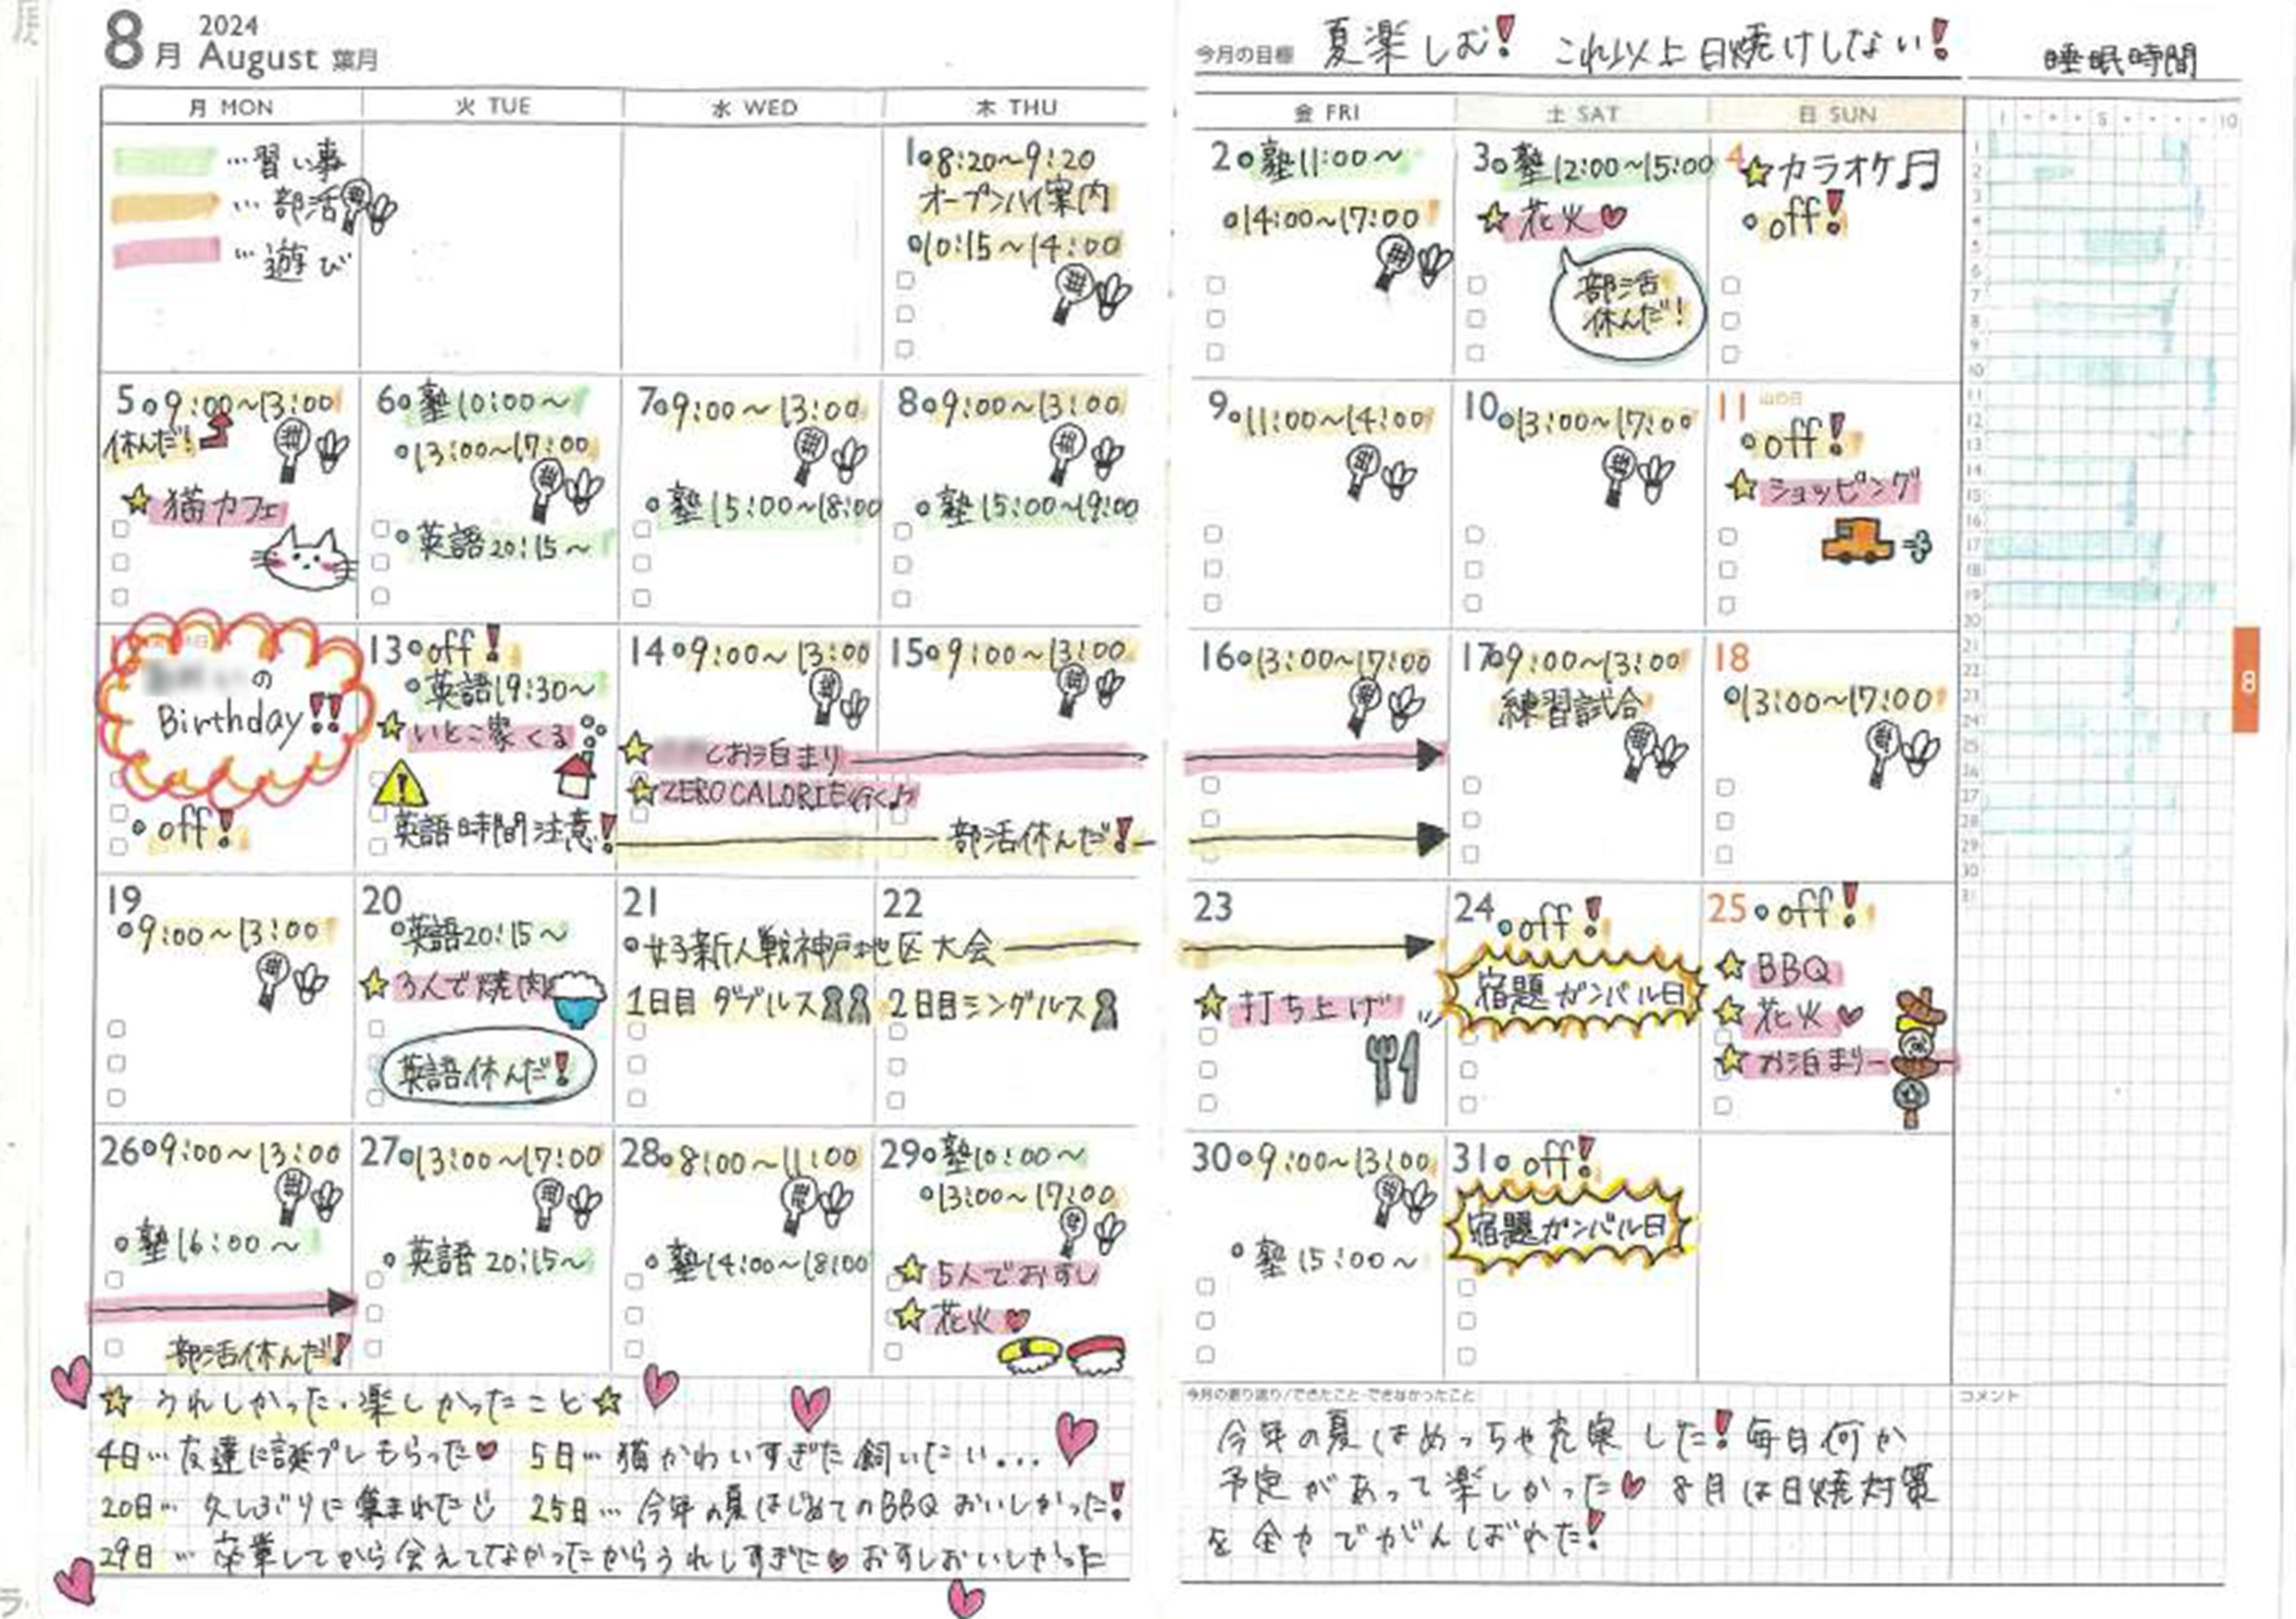 8月 2024
August 葉月
月 MON 火 TUE 水 WED 木 THU
…習い事
…部活
…遊び
1 8:20~9:20
オープンハイ案内
10:15~14:00
5 9:00~13:00
休んだ!
猫カフェ
6 塾10:00~
13:00~17:00
英語20:15~
7 9:00~13:00
塾15:00~18:00
8 9:00~13:00
塾15:00~19:00
の
Birthday!!
off!
13 off!
英語19:30~
いとこ家くる
英語時間注意!
14 9:00~13:00
とお泊まり
ZERO CALORIE行く♪
15 9:00~13:00
部活休んだ!
19
9:00~13:00
20
英語20:15~
3人で焼肉
英語休んだ!
21
女子新人戦神戸地区大会
1日目 ダブルス
22
2日目シングルス
26 9:00~13:00
塾16:00~
部活休んだ!
27 13:00~17:00
英語20:15~
28 8:00~11:00
塾14:00~18:00
29 塾10:00~
13:00~17:00
5人でおすし
花火
☆うれしかった・楽しかったこと☆
4日…友達に誕プレもらった♥ 5日…猫かわいすぎた飼いたい...
20日…久しぶりに集まれた 25日…今年の夏はじめてのBBQおいしかった!
29日…卒業してから会えてなかったからうれしすぎた♥おすしおいしかった
今月の目標 夏楽しむ! これ以上日焼けしない!
睡眠時間
金 FRI 土 SAT 日 SUN
2 塾11:00~
14:00~17:00
3 塾12:00~15:00
花火♥
部活
休んだ!
4 カラオケ♫
off!
9 11:00~14:00
10 13:00~17:00
11 山の日
off!
ショッピング
16 13:00~17:00
17 9:00~13:00
練習試合
18
13:00~17:00
23
打ち上げ
24 off!
宿題ガンバル日
25 off!
BBQ
花火♥
お泊まり
30 9:00~13:00
塾15:00~
31 off!
宿題ガンバル日
1 5 10
1
2
3
4
5
6
7
8
9
10
11
12
13
14
15
16
17
18
19
20
21
22
23
24
25
26
27
28
29
30
31
8
今月の振り返り/できたこと・できなかったこと
コメント
今年の夏はめっちゃ充実した!毎日何か
予定があって楽しかった♥8月は日焼対策
を全力でがんばれた!